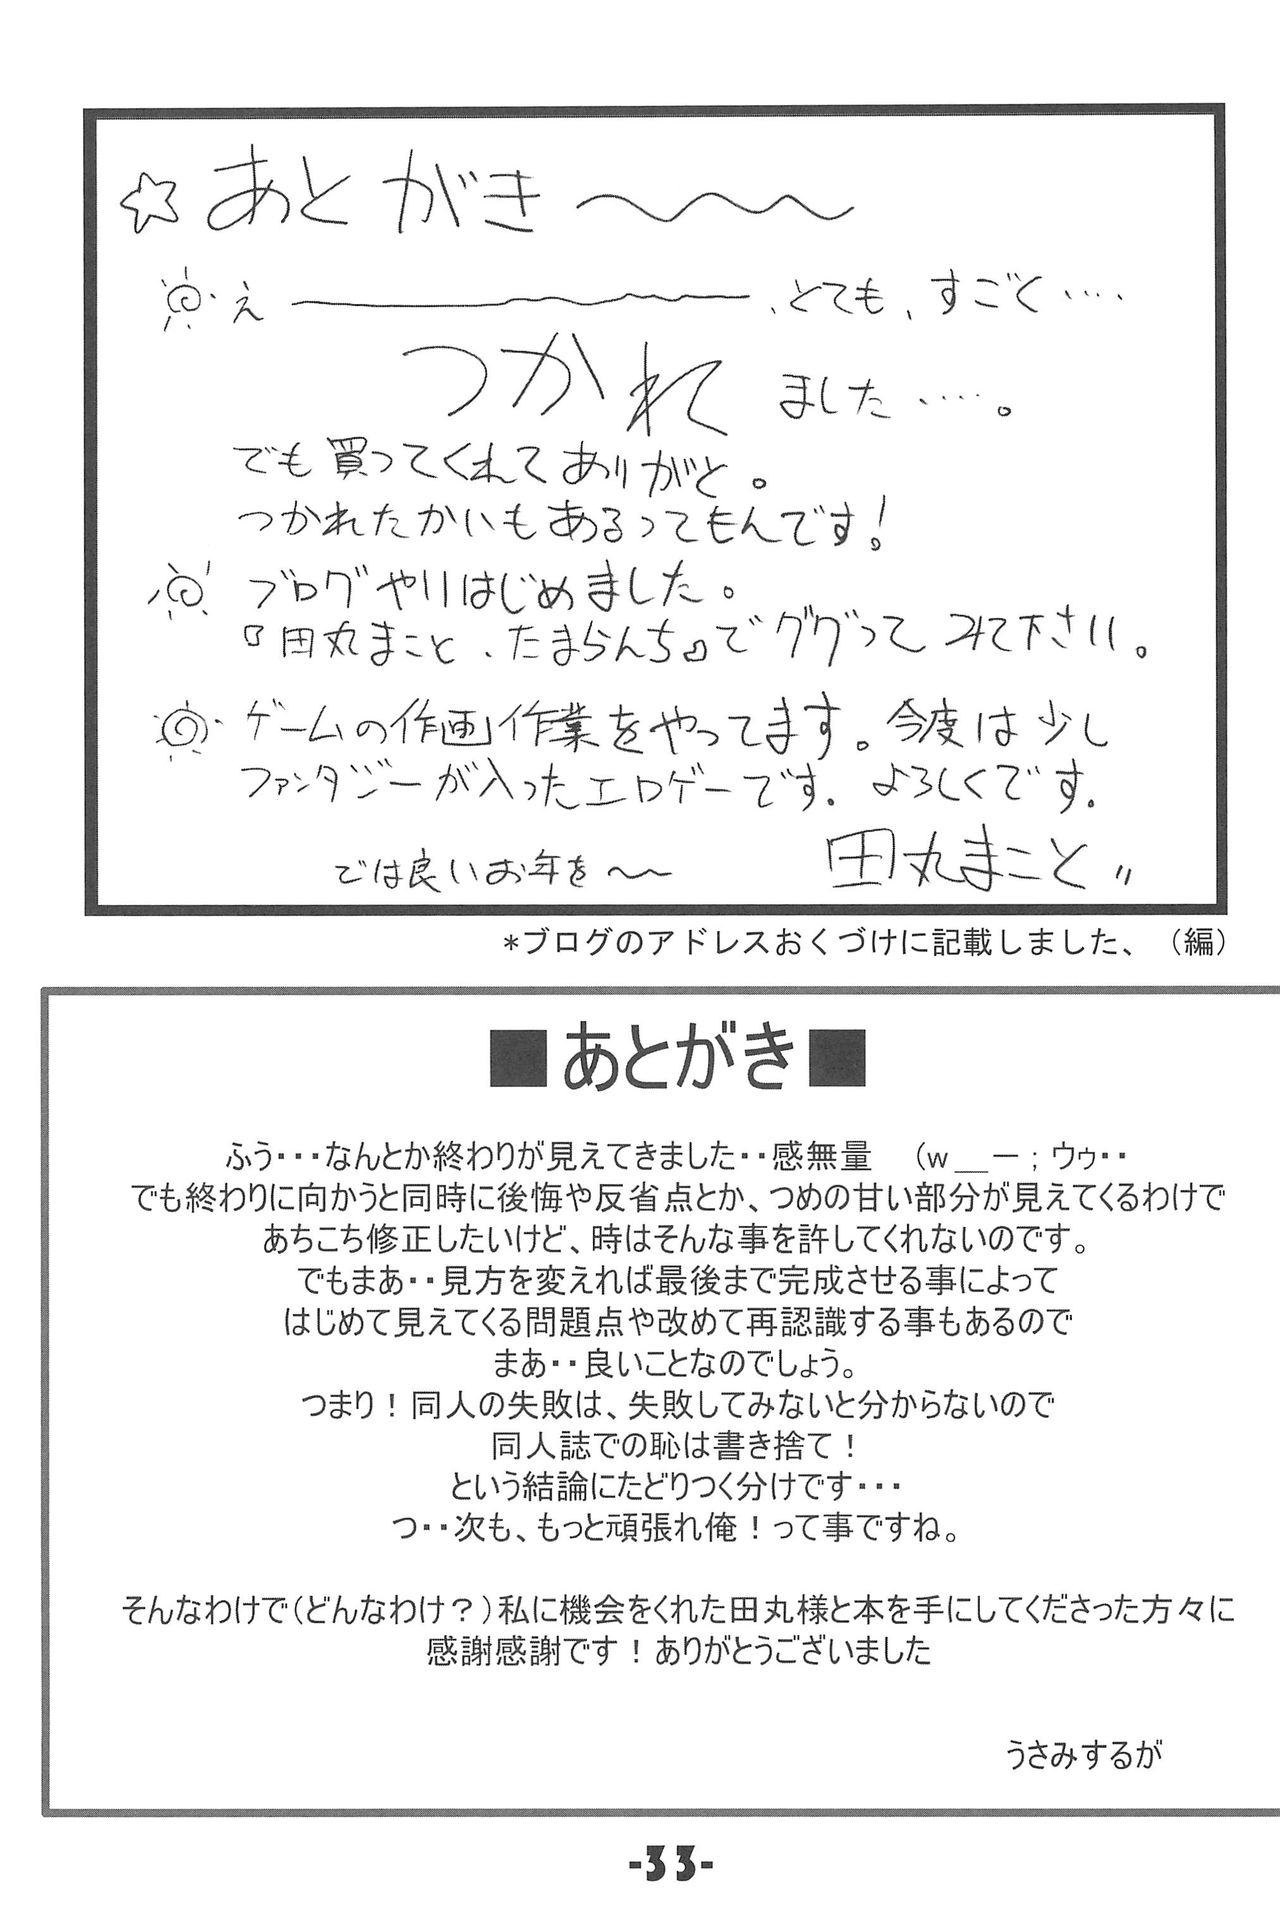 ☆あとがき～～～
え――――――、とても、すごく‥‥
つかれました‥‥。
でも買ってくれてありがと。
つかれたかいもあるってもんです！
ブログやりはじめました。
『田丸まこと、たまらんち』でググってみて下さい。
ゲームの作画作業をやってます。今度は少し
ファンタジーが入ったエロゲーです．よろしくです．
では良いお年を～～ 田丸まこと〃
*ブログのアドレスおくづけに記載しました、（編）
■あとがき■
ふう・・・なんとか終わりが見えてきました・・感無量　（w＿－；ウゥ・・
でも終わりに向かうと同時に後悔や反省点とか、つめの甘い部分が見えてくるわけで
あちこち修正したいけど、時はそんな事を許してくれないのです。
でもまあ・・見方を変えれば最後まで完成させる事によって
はじめて見えてくる問題点や改めて再認識する事もあるので
まあ・・良いことなのでしょう。
つまり！同人の失敗は、失敗してみないと分からないので
同人誌での恥は書き捨て！
という結論にたどりつく分けです・・・
つ・・次も、もっと頑張れ俺！って事ですね。
そんなわけで（どんなわけ？）私に機会をくれた田丸様と本を手にしてくださった方々に
感謝感謝です！ありがとうございました
うさみするが
-33-